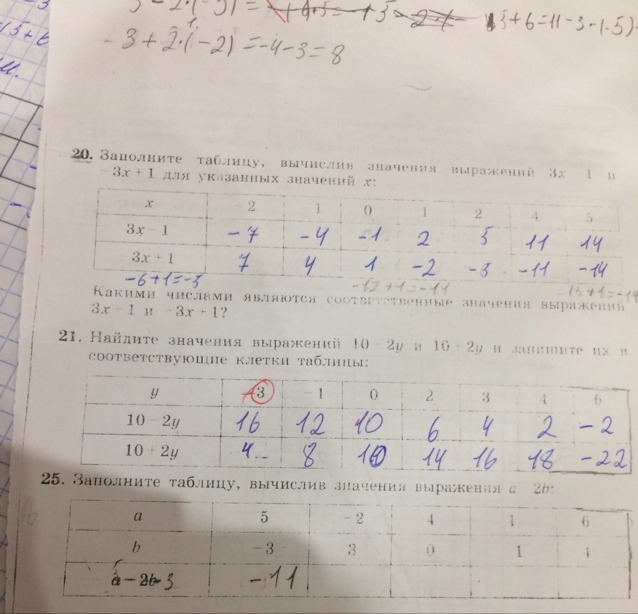 -3+2·(-2)=-4-3=8
20. Заполните таблицу, вычислив значения выражений 3x - 1 и
-3x + 1 для указанных значений x:
x 2 1 0 1 2 4 5
3x - 1 -7 -4 -1 2 5 11 14
3x + 1 7 4 1 -2 -3 -11 -14
-6+1=-3 -12+1=-11 -15+1=-14
Какими числами являются соответственные значения выражений
3x - 1 и -3x + 1?
21. Найдите значения выражений 10 - 2y и 10 + 2y и запишите их в
соответствующие клетки таблицы:
y -3 1 0 2 3 4 6
10 - 2y 16 12 10 6 4 2 -2
10 + 2y 4 8 10 14 16 18 -22
25. Заполните таблицу, вычислив значения выражения a - 2b:
a 5 -2 4 1 6
b -3 3 0 1 4
a-2b -11